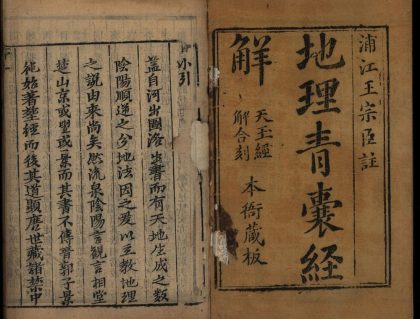 浦江王宗臣註
地理青囊經
解
天玉經
解合刻
本衙藏板
小引
蓋自河出圖洛出書而有天地生成之数
陰陽順逆之分地法因之爰以立教地理
之説由來尚矣然流泉陰陽言觀言相堂
楚山京或望或景而其書不傳晉郭子景
純始著塟經而後其道顯唐世藏諸禁中